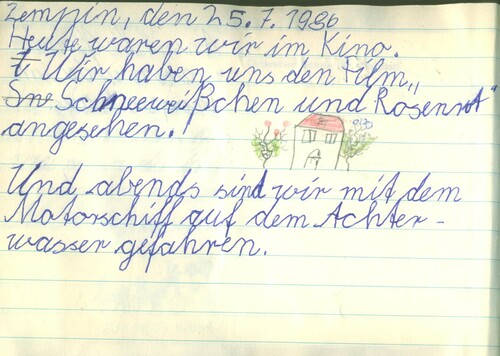 Zempin, den 25.7.1986
Heute waren wir im Kino.
Wir haben uns den Film „
Schneeweißchen und Rosenrot“
angesehen.
Und abends sind wir mit dem
Motorschiff auf dem Achter-
wasser gefahren.